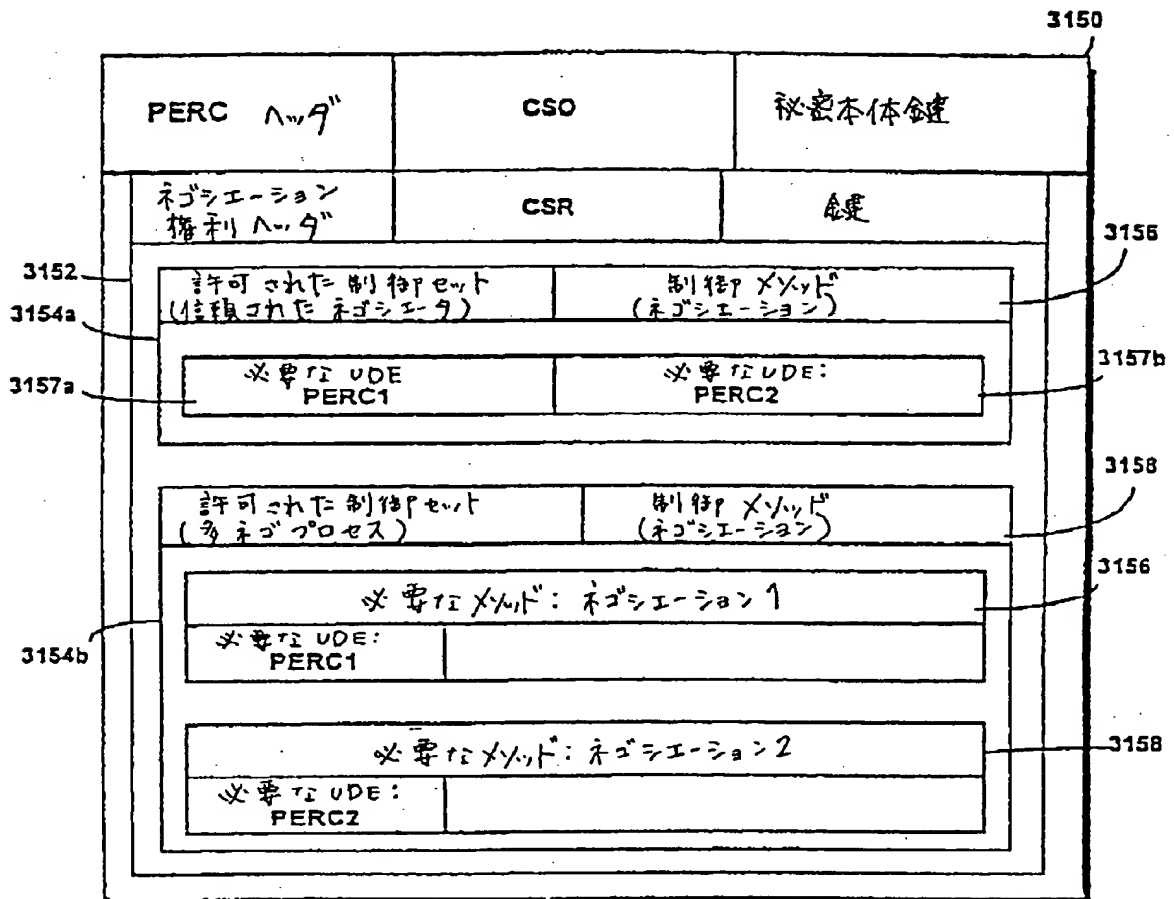 3150
PERC ヘッダ
CSO
秘密本体鍵
ネゴシエーション
権利ヘッダ
CSR
鍵
3152
3156
許可された制御セット
(信頼されたネゴシエータ)
制御メソッド
(ネゴシエーション)
3154a
3157a
必要なUDE
PERC1
必要なUDE:
PERC2
3157b
3158
許可された制御セット
(多ネゴプロセス)
制御メソッド
(ネゴシエーション)
3156
必要なメソッド:ネゴシエーション1
必要なUDE:
PERC1
3154b
必要なメソッド:ネゴシエーション2
3158
必要なUDE:
PERC2